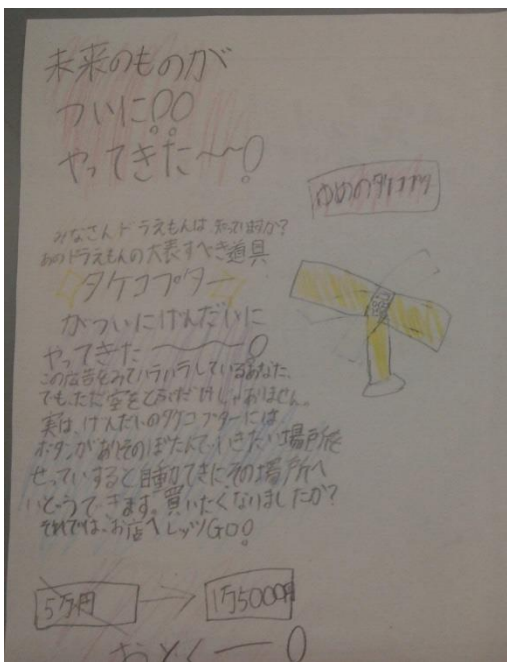 未来のものが
ついに!!
やってきた～～!
ゆめの
みなさんドラえもんは、知っいますか?
あのドラえもんの大表すべき道具
タケコプター
がついにげんだいに
やってきた～～～!
この広告をみてハラハラしているあなた、
でも、ただ空をとぶだけじゃありません。
実は、げんだいのタケコプターには
ボタンがありそのぼたんでいきたい場所を
せっていすると自動てきにその場所へ
いどうできます。買いたくなりましたか?
それでは、お店へレッツGO!
5万円 → 1万5000円
おとくー!